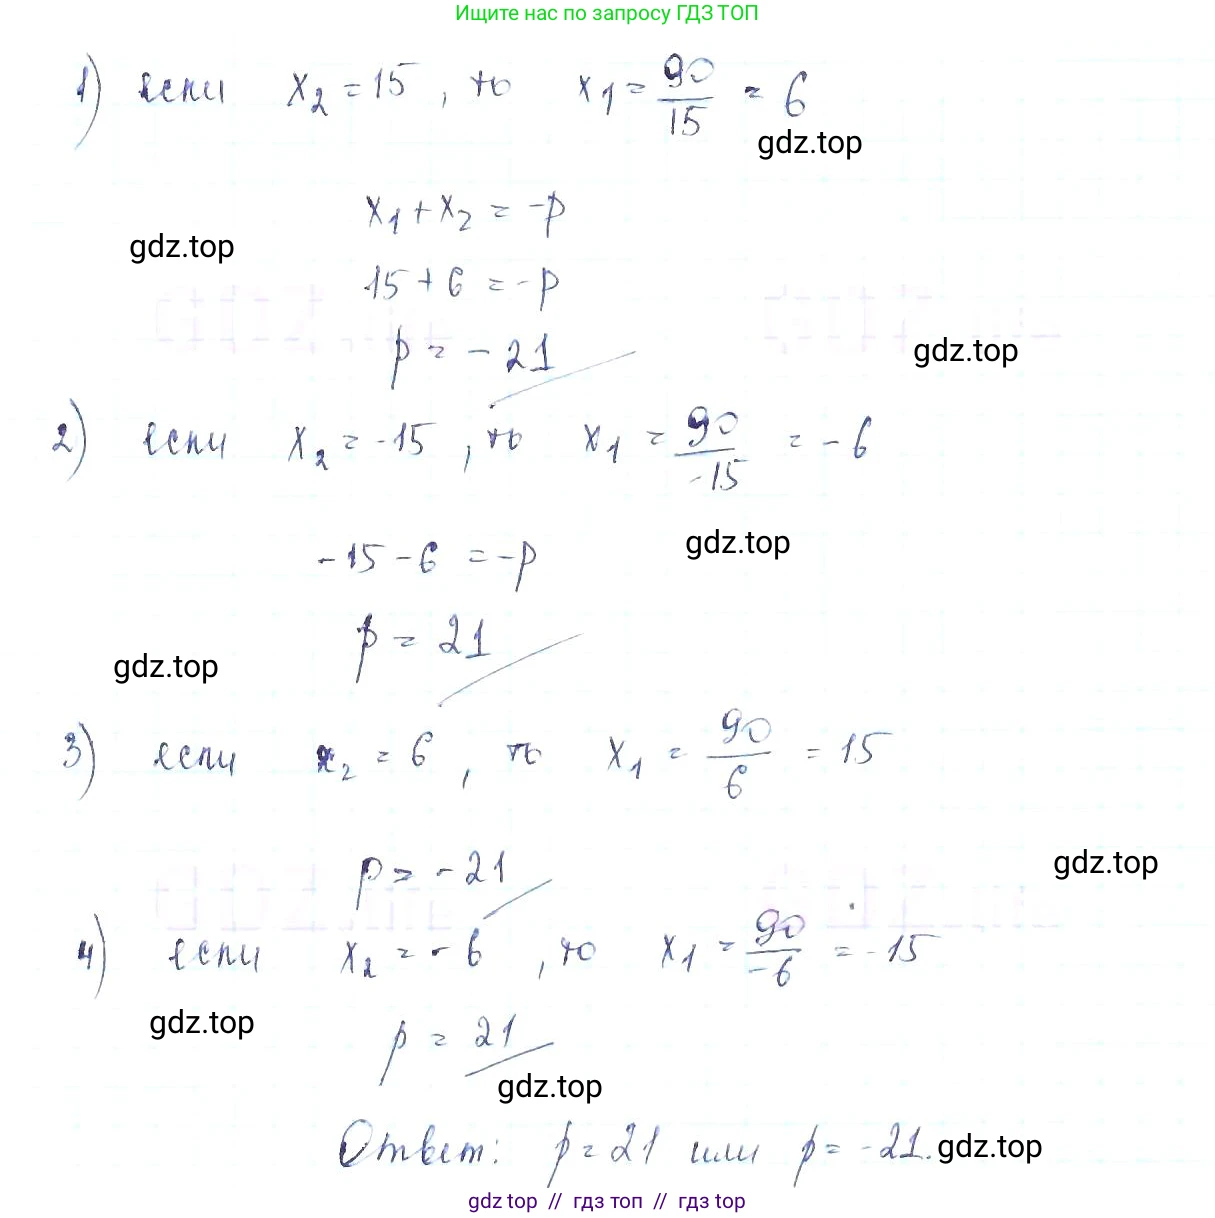 Ищите нас по запросу ГДЗ ТОП
1) если x₂ = 15, то x₁ = 90/15 = 6
gdz.top
x₁ + x₂ = -p
gdz.top
15 + 6 = -p
p = -21
gdz.top
2) если x₂ = -15, то x₁ = 90/-15 = -6
-15 - 6 = -p
gdz.top
p = 21
gdz.top
3) если x₂ = 6, то x₁ = 90/6 = 15
p = -21
gdz.top
4) если x₂ = -6, то x₁ = 90/-6 = -15
gdz.top
p = 21
gdz.top
Ответ: p = 21 или p = -21.
gdz.top
gdz top // гдз топ // gdz top